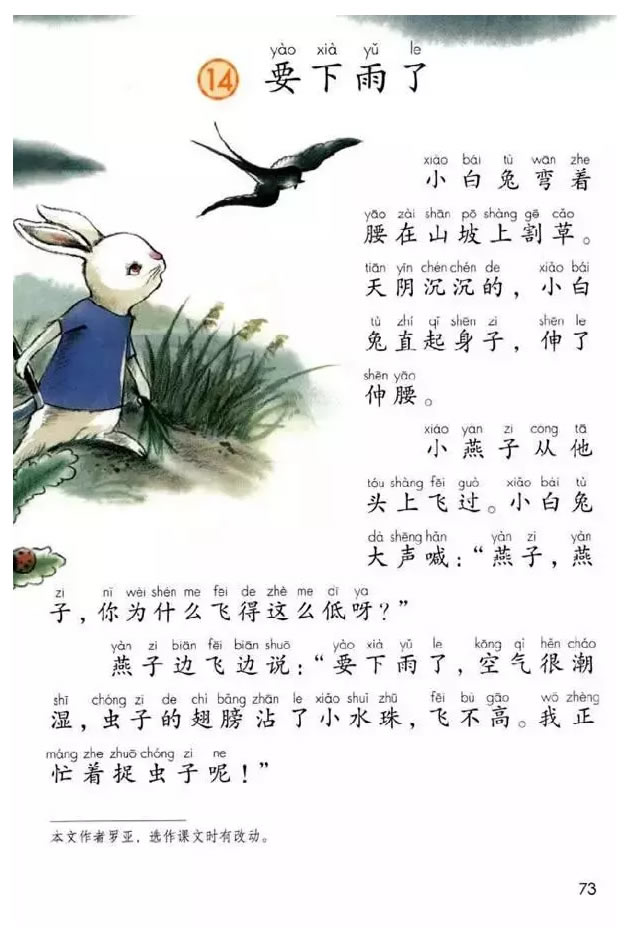 yào xià yǔ le
14 要下雨了
xiǎo bái tù wān zhe
小白兔弯着
yāo zài shān pō shàng gē cǎo
腰在山坡上割草。
tiān yīn chén chén de xiǎo bái
天阴沉沉的，小白
tù zhí qǐ shēn zi shēn le
兔直起身子，伸了
shēn yāo
伸腰。
xiǎo yàn zi cóng tā
小燕子从他
tóu shàng fēi guò xiǎo bái tù
头上飞过。小白兔
dà shēng hǎn yàn zi yàn
大声喊：“燕子，燕
zi nǐ wèi shén me fēi de zhè me dī ya
子，你为什么飞得这么低呀？”
yàn zi biān fēi biān shuō yào xià yǔ le kōng qì hěn cháo
燕子边飞边说：“要下雨了，空气很潮
shī chóng zi de chì bǎng zhān le xiǎo shuǐ zhū fēi bù gāo wǒ zhèng
湿，虫子的翅膀沾了小水珠，飞不高。我正
máng zhe zhuō chóng zi ne
忙着捉虫子呢！”
本文作者罗亚，选作课文时有改动。
73